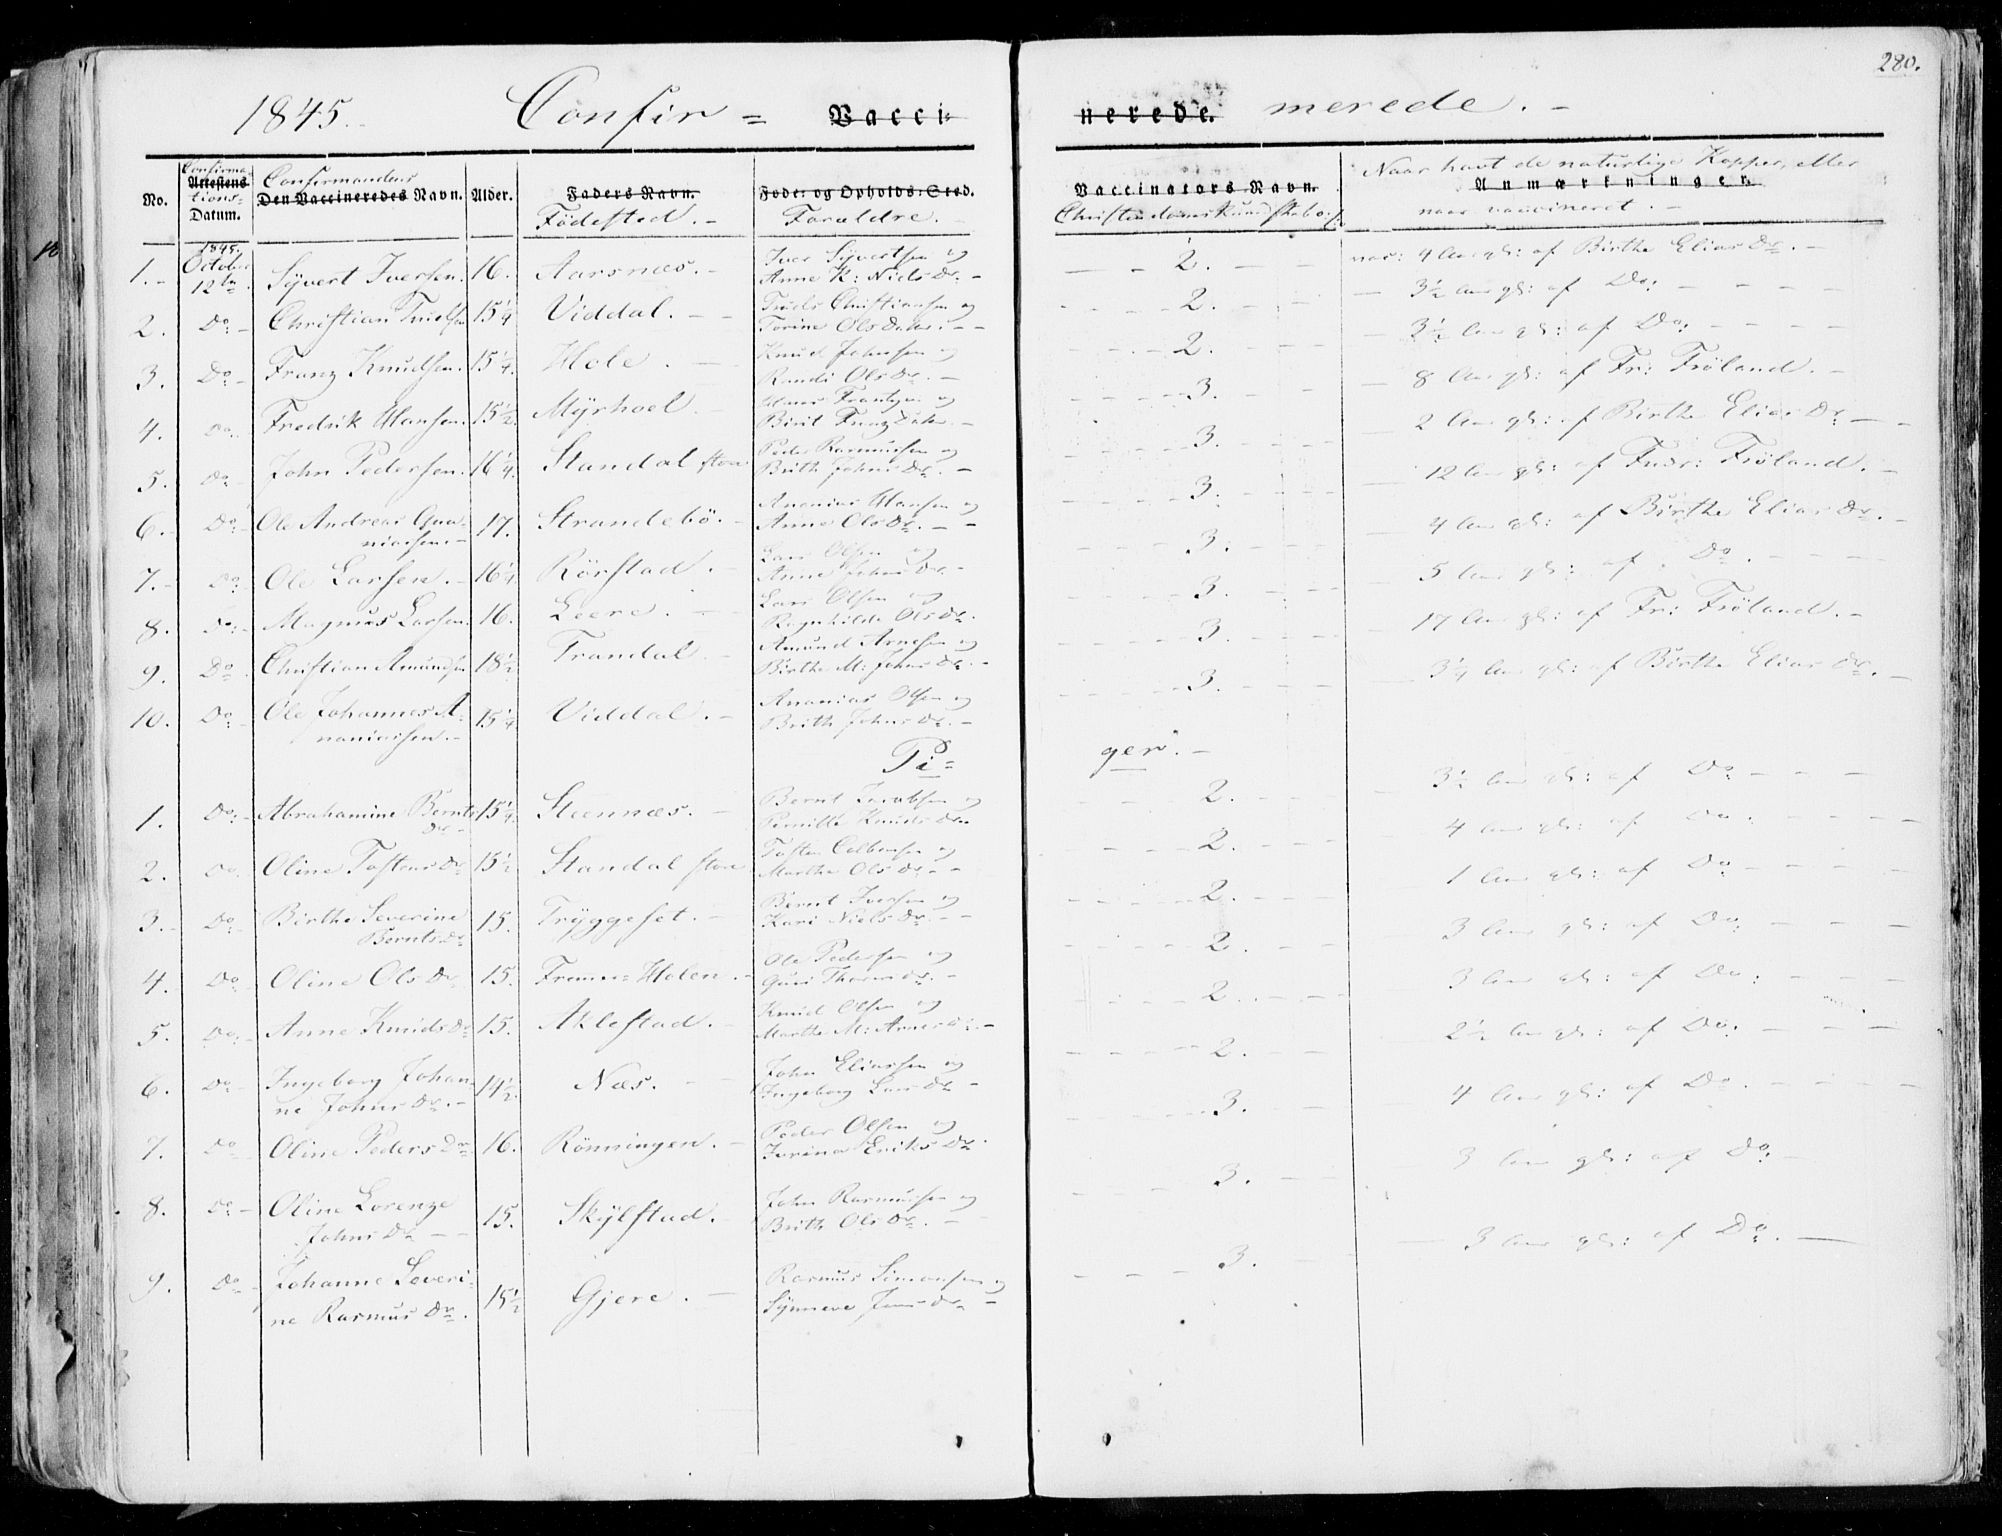 280.
1845. Confir = Vacci- nerede. merede. -
No. Attestens Datum. Confirmations-
Den Vaccineredes Navn. Confirmandens
Alder.
Faders Navn. Födested. -
Føde- og Opholds-Sted. Forældre. -
Vaccinators Navn. Christendoms Kundskab
Naar havt de naturlige Kopper, eller
Anmærkninger.
naar vaccineret. -
1. - 1845. October 12te Syvert Iversen. 16. Aarsnæs. - Iver Syvertsen og Anne K: Niels Dr. - 2. 4 Aar gl: af Birthe Elias Dr. -
2. Do - Christian Truelsen 15 1/4 Viddal. - Truels Christiansen og Torine Ols Datter. - 2. 3 1/2 Aar gl: af Do:
3. Do - Franz Knudsen. 15 1/4. Hole. - Knud Johnsen og Randi Ols Dr. - 2. 3 1/2 Aar gl: af Do:
4. Do. Fredrik Hansen. 15 1/2. Myrhoel. - Hans Frantzen og Birit Franz Datter. - 3. 8 Aar gl: af Fr: Fröland. -
5. Do - John Pedersen. 16 1/4. Standal store Peder Rasmussen og Brith Johns Dr. - 3. 2 Aar gl: af Birthe Elias Dr -
6. - Do: Ole Andreas Ananiassen. - 17. Strandebö. - Ananias Hansen og Anne Ols Dr. - 3. 12 Aar gl: af Fredr: Fröland. -
7. - Do: Ole Larsen. - 16 1/4. Rörstad. - Lars Olsen og Anne Johns Dr. - 3. 4 Aar gl: af Birthe Elias Dr. -
8. Do: - Magnus Larsen. 16. Leere. - Lars Olsen og Ragnhilde Ols Dr. 3. 5 Aar gl: af Do.
9. Do. Christian Amundsen 18 1/2 Trandal. - Amund Arnesen og Birthe M: Johns Dr. - 3. 17 Aar gl: af Fr: Fröland. -
10. Do: - Ole Johannes Ananiassen. - 15 1/4. Viddal. - Ananias Olsen og Brith Johns Dr. - 3. 3 1/4 Aar gl: af Birthe Elias Dr. -
Pi= ger. -
1. Do: - Abrahamine Bernts Dr - 15 1/4. Steennæs. - Bernt Jacobsen og Pernille Knuds Dtr 2. 3 1/2 Aar gl: af Do
2. Do. Oline Tostens Dr 15 1/2 Standal store Tosten Colbensen og Marthe Ols Dr - 2. 4 Aar gl: af Do.
3. - Do - Birthe Severine Bernts Dr 15. Tryggeset. - Bernt Iversen og Kari Niels Dr. - 2. 1 Aar gl: af Do
4. Do - Oline Ols Dr 15. Frem-Holen. - Ole Pedersen og Guri Thomas Dr. - 2. 3 Aar gl: af Do.
5. Do: - Anne Knuds Dr 15. Aklestad. - Knud Olsen og Marthe M: Arnes Dr. - 2. 3 Aar gl: af Do.
6. Do - Ingeborg Johanne Johns Dr. - 14 1/2. Næs. - John Eliassen og Ingeborg Lars Dr - 2. 2 1/2 Aar gl: af Do.
7. Do - Oline Peders Dr 16. Rönningen. - Peder Olsen og Jorina Eriks Dr. 3. 4 Aar gl: af Do.
8. Do - Oline Lorenze Johns Dr - 15. Skylstad. - John Rasmussen og Brith Ols Dr. - 3. 3 Aar gl: af Do: -
9. Do - Johanne Severine Rasmus Dr. 15 1/2 Gjere. - Rasmus Simonsen og Synneve Jens Dr - 3. 3 Aar gl: af Do. -